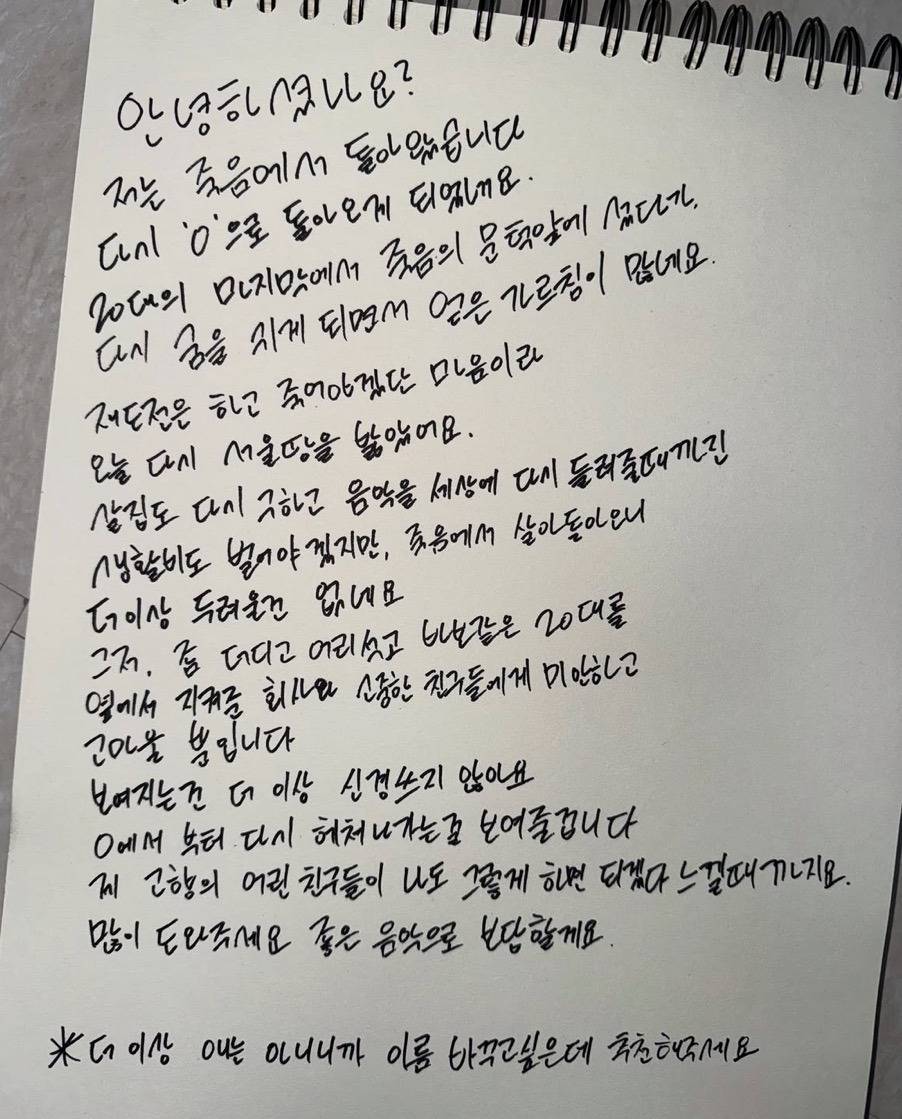 안녕하셨나요?
저는 죽음에서 돌아왔습니다
다시 '0'으로 돌아오게 되었네요.
20대의 마지막에서 죽음의 문턱앞에 섰다가,
다시 숨을 쉬게 되면서 얻은 가르침이 많네요.
재도전은 하고 죽어야겠단 마음이라
오늘 다시 서울땅을 밟았어요.
살집도 다시 구하고 음악을 세상에 다시 들려줄때까진
생활비도 벌어야 겠지만, 죽음에서 살아돌아오니
더이상 두려울건 없네요
그저, 좀 더디고 어리석고 바보같은 20대를
옆에서 지켜준 회사와 소중한 친구들에게 미안하고
고마울 뿐입니다
보여지는건 더 이상 신경쓰지 않아요
0에서 부터 다시 헤쳐나가는걸 보여줄겁니다
제 고향의 어린친구들이 나도 그렇게 하면 되겠다 느낄때까지요.
많이 도와주세요 좋은 음악으로 보답할게요.
*더 이상 애는 아니니까 이름 바꾸고싶은데 추천해주세요